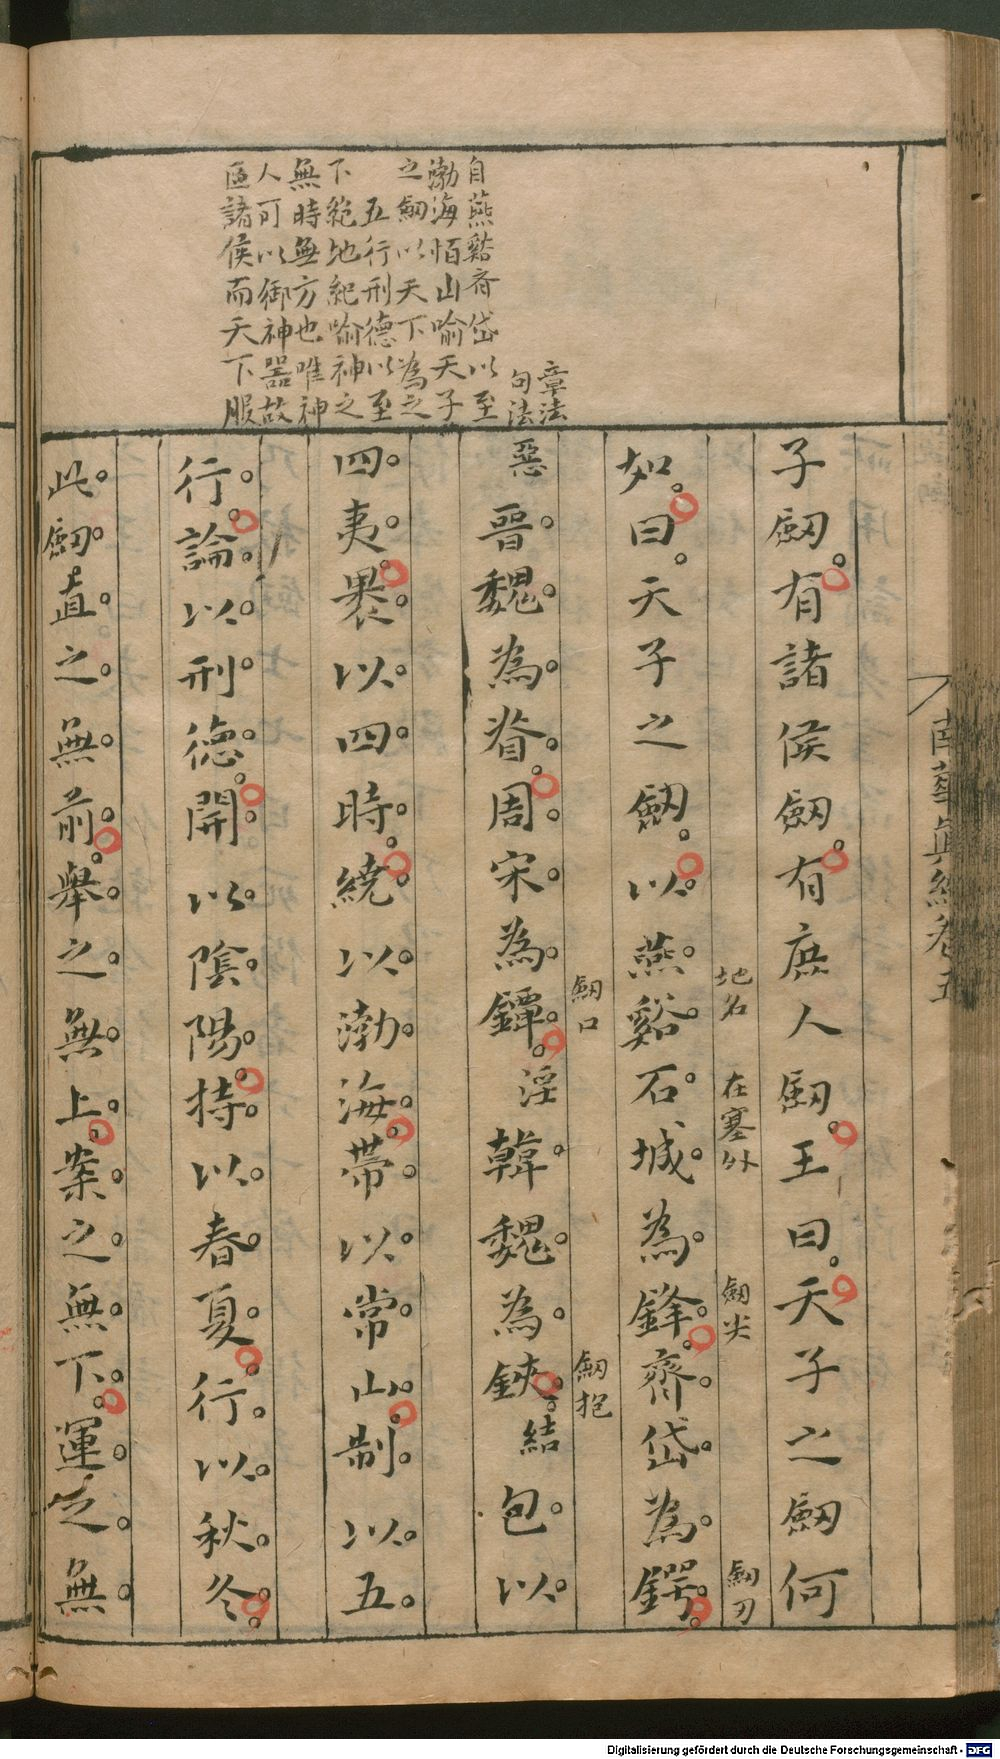 南華眞經卷五
章法
句法
自燕谿齊岱以至
渤海恒山喻天子
之劔以天下為之
五行刑德以至
下絕地紀喻神之
無時無方也唯神
人可以御神器故
匡諸侯而天下服
子劔有諸侯劔有庶人劔王曰天子之劔何
地名
在塞外
劔尖
劔刀
如曰天子之劔以燕谿石城為鋒齊岱為鍔
劔口
劔把
惡
晉魏為脊周宋為鐔
淫
韓魏為鋏
結
包以
四夷褁以四時繞以渤海帶以常山制以五
行論以刑德開以陰陽持以春夏行以秋冬
此劔直之無前舉之無上案之無下運之無
Digitalisierung gefördert durch die Deutsche Forschungsgemeinschaft - DFG